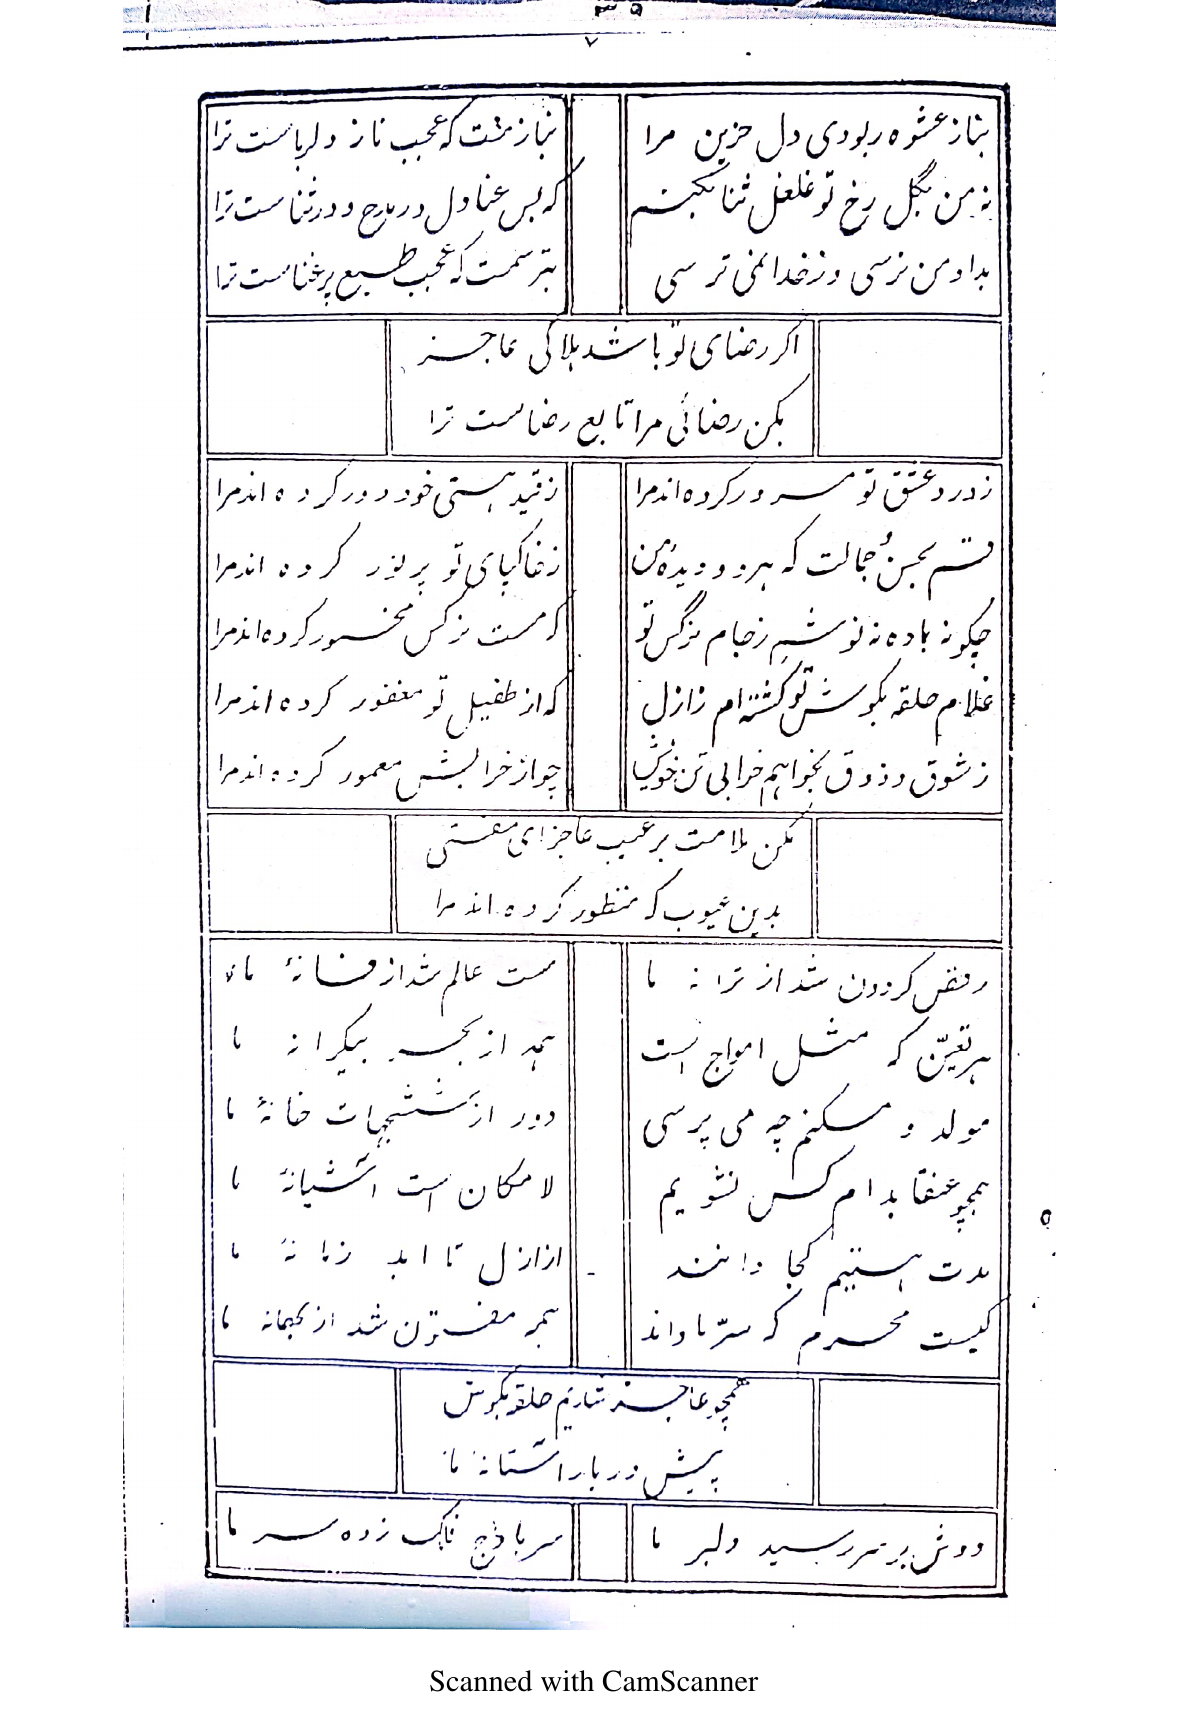 ۳۵
۷
بناز عشوه ربودی دل حزین مرا
بنازمت که عجب ناز دلرباست ترا
نه من بگل رخ تو غلغل ثنا بکنم
که بس عنادل در مدح و در ثناست ترا
بداد من نرسی و ز خدا نمی ترسی
بترسمت که عجب طبع پر غناست ترا
اگر رضای تو باشد هلاکی عاجز
بکن رضائی مرا تابع رضاست ترا
ز درد عشق تو مسرور کرده اند مرا
ز قید هستی خود دور کرده اند مرا
قسم بحسن و جمالت که هر دو دیدهٔ من
ز خاکپای تو پر نور کرده اند مرا
چگونه باده نه نوشم ز جام نرگس تو
که مست نرگس مخمور کرده اند مرا
غلام حلقه بگوش تو گشته ام ز ازل
که از طفیل تو مغفور کرده اند مرا
ز شوق و ذوق بخواهم خرابی تن خویش
چو از خرابیش معمور کرده اند مرا
مکن ملامت بر عیب عاجز ای مفتی
بدین عیوب که منظور کرده اند مرا
رقص گردون شد از ترانه ما
مست عالم شد از فسانهٔ ما
هر تعیّن که مثل امواج است
همه از بحر بیکرانه ما
مولد و مسکنم چه می پرسی
دور از ششجهات خانهٔ ما
همچو عنقا بدام کس نشویم
لامکان است آشیانهٔ ما
مدت هستیم کجا دانند
از ازل تا ابد زمانهٔ ما
کیست محرم که سرّ ما داند
همه مفتون شد از بهانه ما
همچو عاجز شدیم حلقه بگوش
پیش دربار آستانهٔ ما
۵
دوش بر سر رسید دلبر ما
سر باوج فلک زده سر ما
Scanned with CamScanner